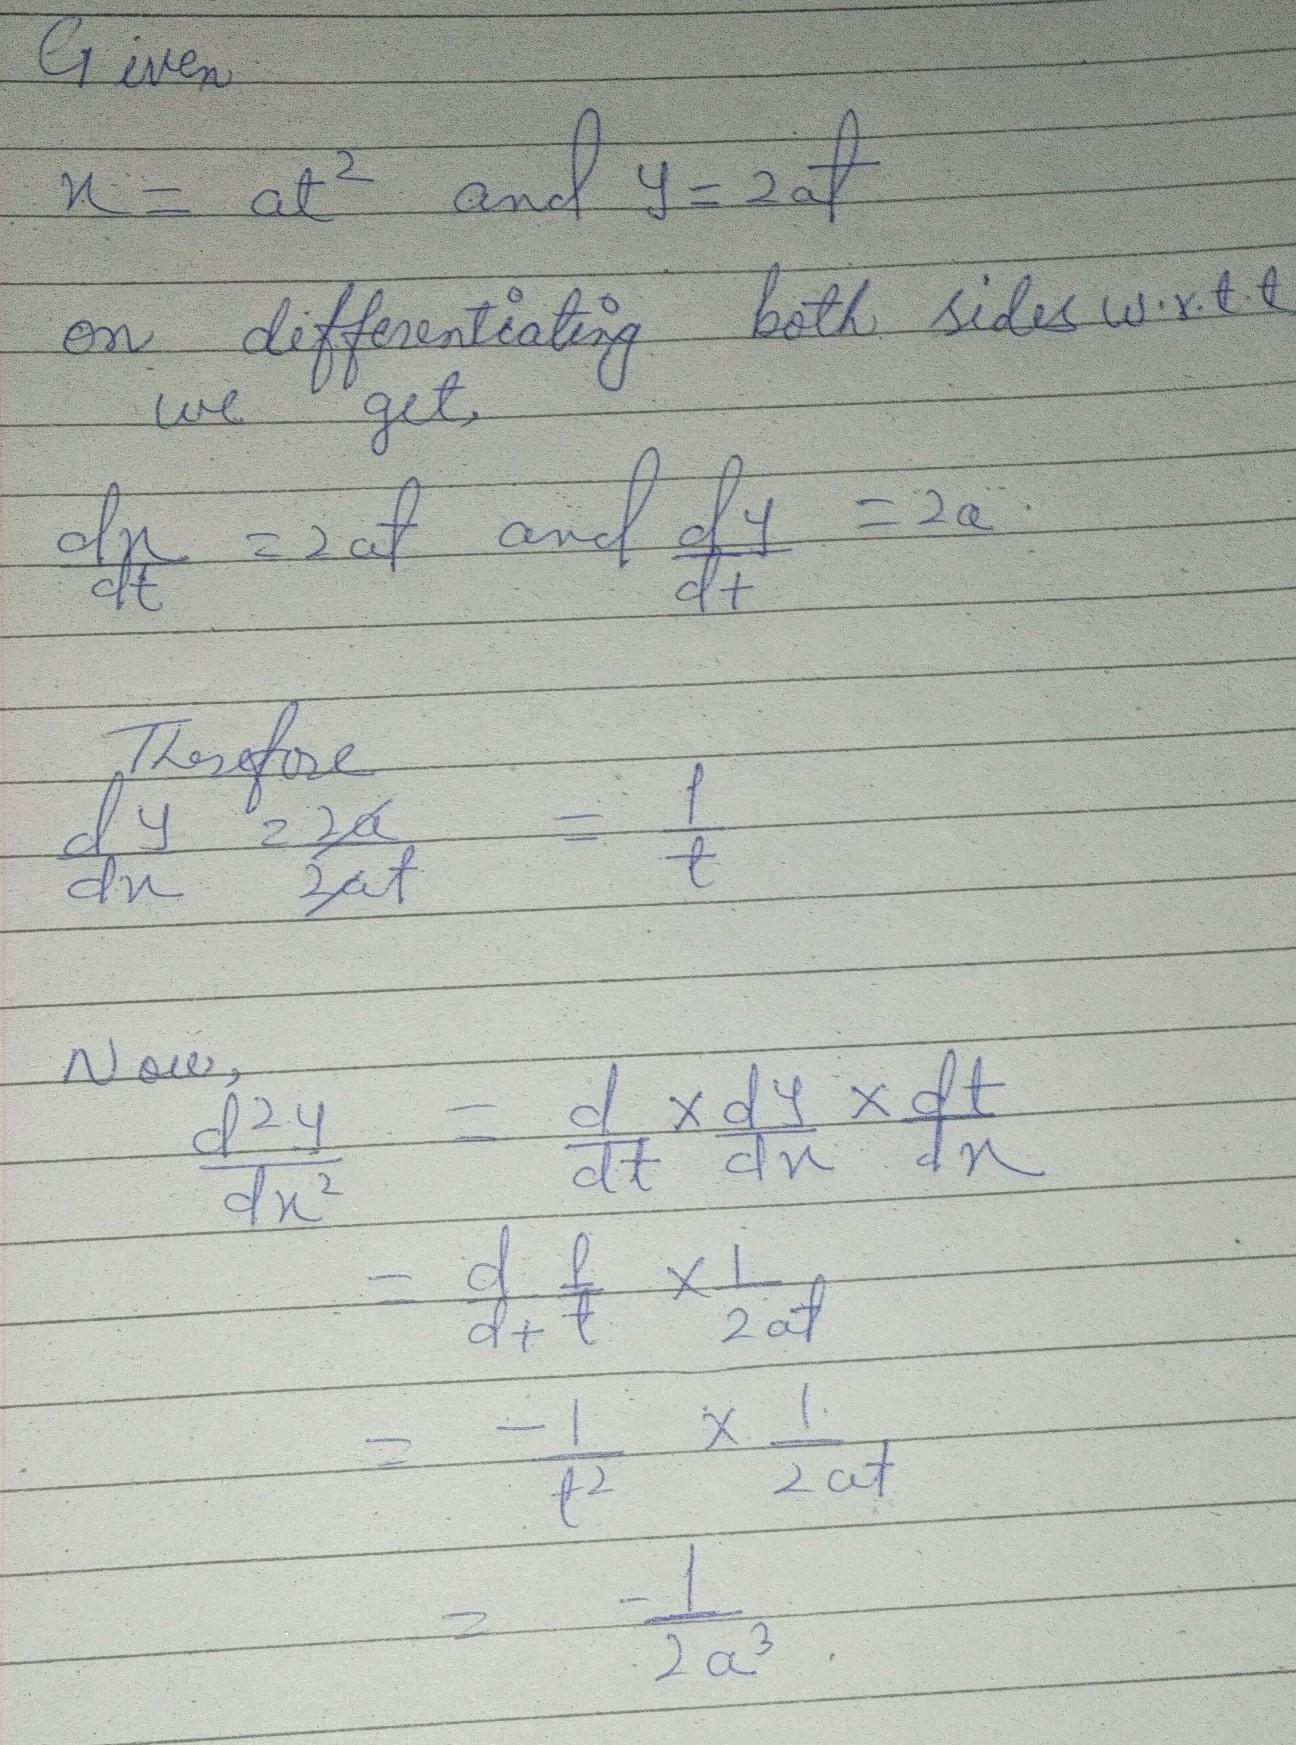 Given
x = at² and y = 2at
on differentiating both sides w.r.t t
we get,
dx/dt = 2at and dy/dt = 2a.
Therefore
dy/dx = 2a/2at = 1/t
Now,
d²y/dx² = d/dt × dy/dx × dt/dx
= d/dt 1/t × 1/2at
= -1/t² × 1/2at
= -1/2a³.